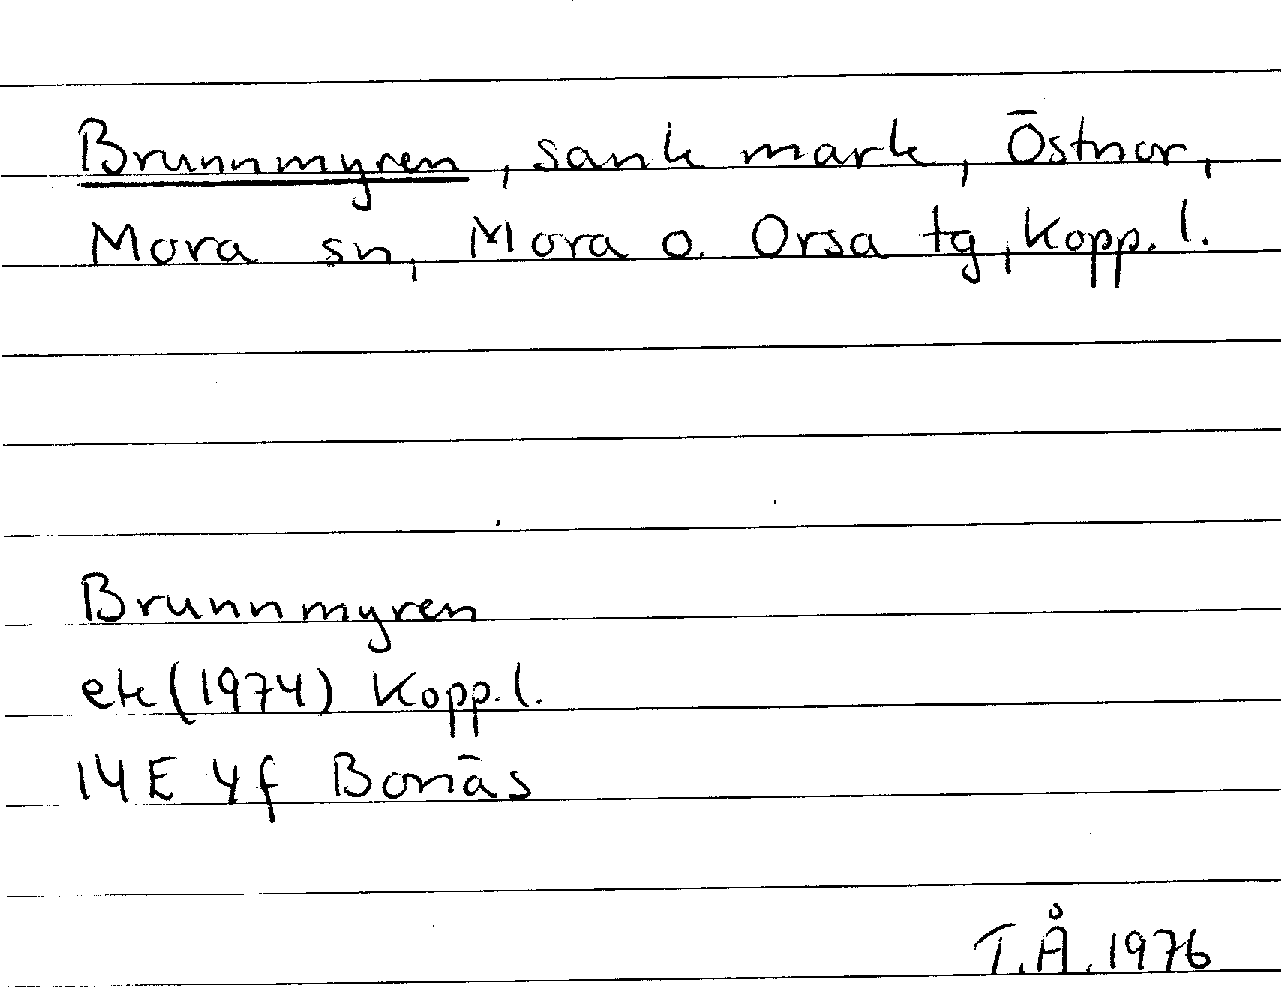 Brunnmyren, sank mark, Östnor,
Mora sn, Mora o. Orsa tg, Kopp. l.
Brunnmyren
ek (1974) Kopp. l.
14E 4f Bonäs
T.Å. 1976